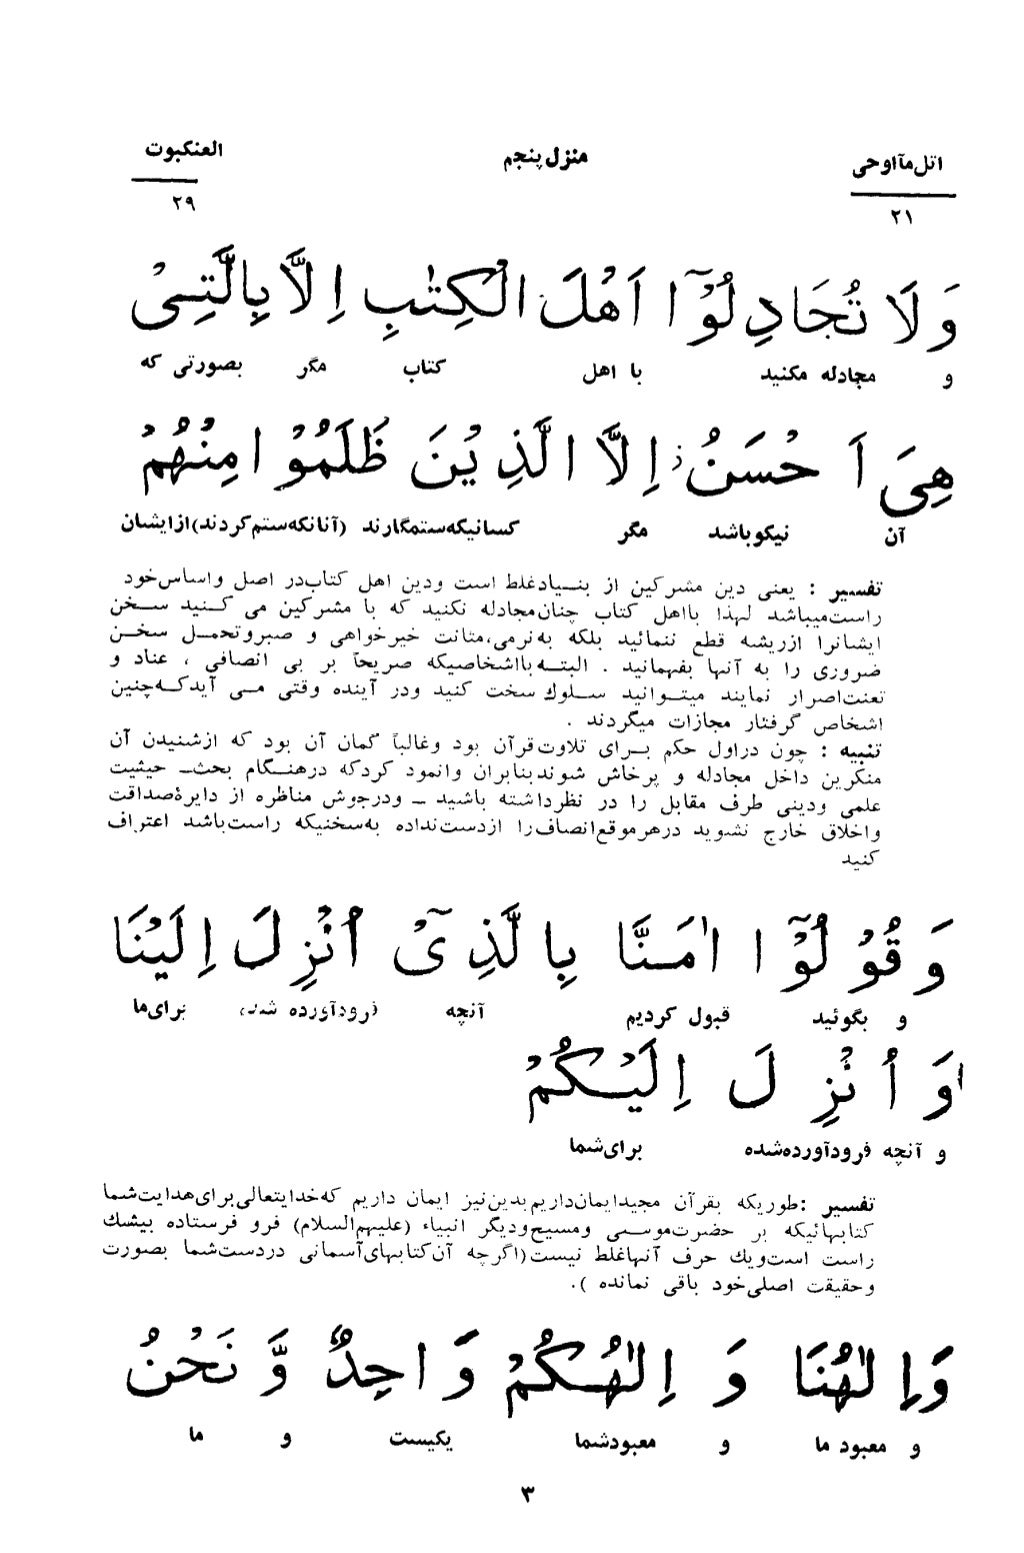 اتل مآ اوحی
منزل پنجم
العنكبوت
۲۱
۲۹
وَلَا تُجَادِلُوْٓا اَهْلَ الْكِتٰبِ اِلَّا بِالَّتِىْ
و مجادله مکنید با اهل کتاب مگر بصورتی که
هِىَ اَحْسَنُ ۖ اِلَّا الَّذِيْنَ ظَلَمُوْا مِنْهُمْ
آن نیکوباشد مگر کسانیکه ستمگارند (آنانکه ستم کردند) از ایشان
تفسیر : یعنی دین مشرکین از بنیاد غلط است ودین اهل کتاب در اصل واساس خود
راست میباشد لهذا با اهل کتاب چنان مجادله نکنید که با مشرکین می کنید سخن
ایشانرا ازریشه قطع ننمائید بلکه به نرمی، متانت خیرخواهی و صبروتحمل سخن
ضروری را به آنها بفهمانید . البته با اشخاصیکه صریحاً بر بی انصافی ، عناد و
تعنت اصرار نمایند میتوانید سلوك سخت کنید ودر آینده وقتی می آید که چنین
اشخاص گرفتار مجازات میگردند .
تنبیه : چون دراول حکم برای تلاوت قرآن بود وغالباً گمان آن بود که ازشنیدن آن
منکرین داخل مجادله و پرخاش شوند بنابران وانمود کرد که درهنگام بحث ـ حیثیت
علمی ودینی طرف مقابل را در نظر داشته باشید ـ ودرجوش مناظره از دایرۀ صداقت
واخلاق خارج نشوید درهر موقع انصاف را ازدست نداده به سخنیکه راست باشد اعتراف
کنید
وَقُوْلُوْٓا اٰمَنَّا بِالَّذِىْٓ اُنْزِلَ اِلَيْنَا
و بگوئید قبول کردیم آنچه فرودآورده شده برای ما
وَاُنْزِلَ اِلَيْكُمْ
و آنچه فرودآورده شده برای شما
تفسیر : طوریکه بقرآن مجید ایمان داریم بدین نیز ایمان داریم که خدایتعالی برای هدایت شما
کتابهائیکه بر حضرت موسی ومسیح ودیگر انبیاء (علیهم السلام) فرو فرستاده بیشك
راست است ویك حرف آنها غلط نیست (اگرچه آن کتابهای آسمانی دردست شما بصورت
وحقیقت اصلی خود باقی نمانده ).
وَاِلٰهُنَا وَاِلٰهُكُمْ وَاحِدٌ وَّنَحْنُ
و معبود ما و معبودشما یکیست و ما
۳